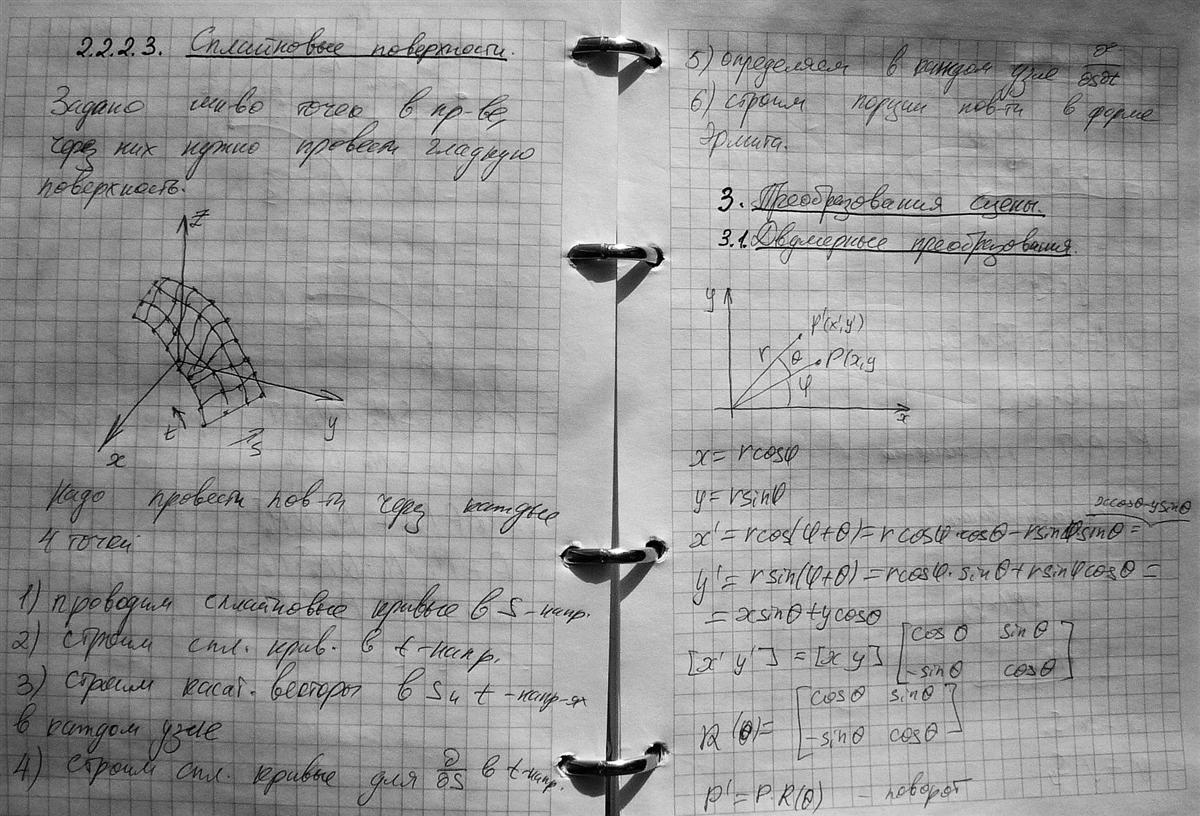 2.2.2.3. Сплайновые поверхности.
Задано мн-во точек в пр-ве,
через них нужно провести гладкую
поверхность.
z
y
x
t
s
Надо провести пов-ти через каждые
4 точки
1) проводим сплайновые кривые в S-напр.
2) строим спл. крив. в t-напр.
3) строим касат. векторы в S и t-напр-ях
в каждом узле
4) строим спл. кривые для ∂/∂S в t-напр.
5) определяем в каждом узле ∂²/∂s∂t
6) строим порции пов-ти в форме
Эрмита.
3. Преобразования сцены.
3.1. Двумерные преобразования.
y
P'(x',y')
r
θ
P(x,y
φ
x
x = rcosφ
y = rsinφ
xcosθ-ysinθ
x' = rcos(φ+θ) = rcosφ·cosθ - rsinφsinθ =
y' = rsin(φ+θ) = rcosφ·sinθ + rsinφcosθ =
= xsinθ + ycosθ
[x' y'] = [x y] [cosθ sinθ
-sinθ cosθ]
R(θ) = [cosθ sinθ
-sinθ cosθ]
P' = P·R(θ) - поворот